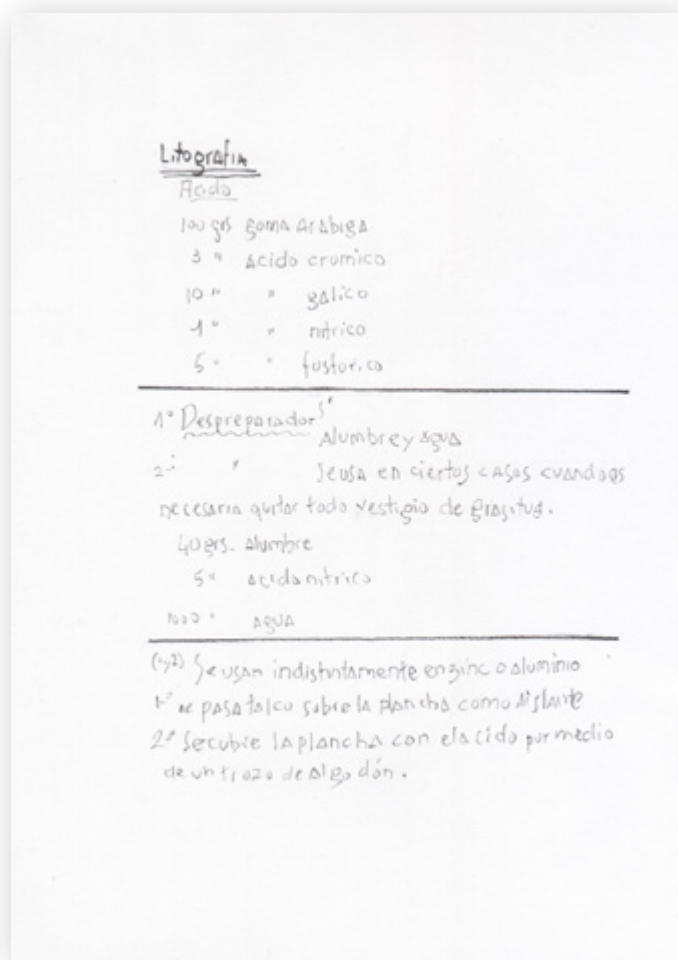 Litografía
Acido
100 grs goma Arabiga
3 " acido cromico
10 " " galico
1 " " nitrico
5 " " fosforico
1º Despreparador
Alumbre y agua
2º " Se usa en ciertos casos cuando es
necesaria quitar todo vestigio de grasitud.
40 grs. Alumbre
5 " acido nitrico
1000 " agua
(1y2) Se usan indistintamente en zinc o aluminio
1º se pasa talco sobre la plancha como aislante
2º Se cubre la plancha con el acido por medio
de un trozo de algodón.